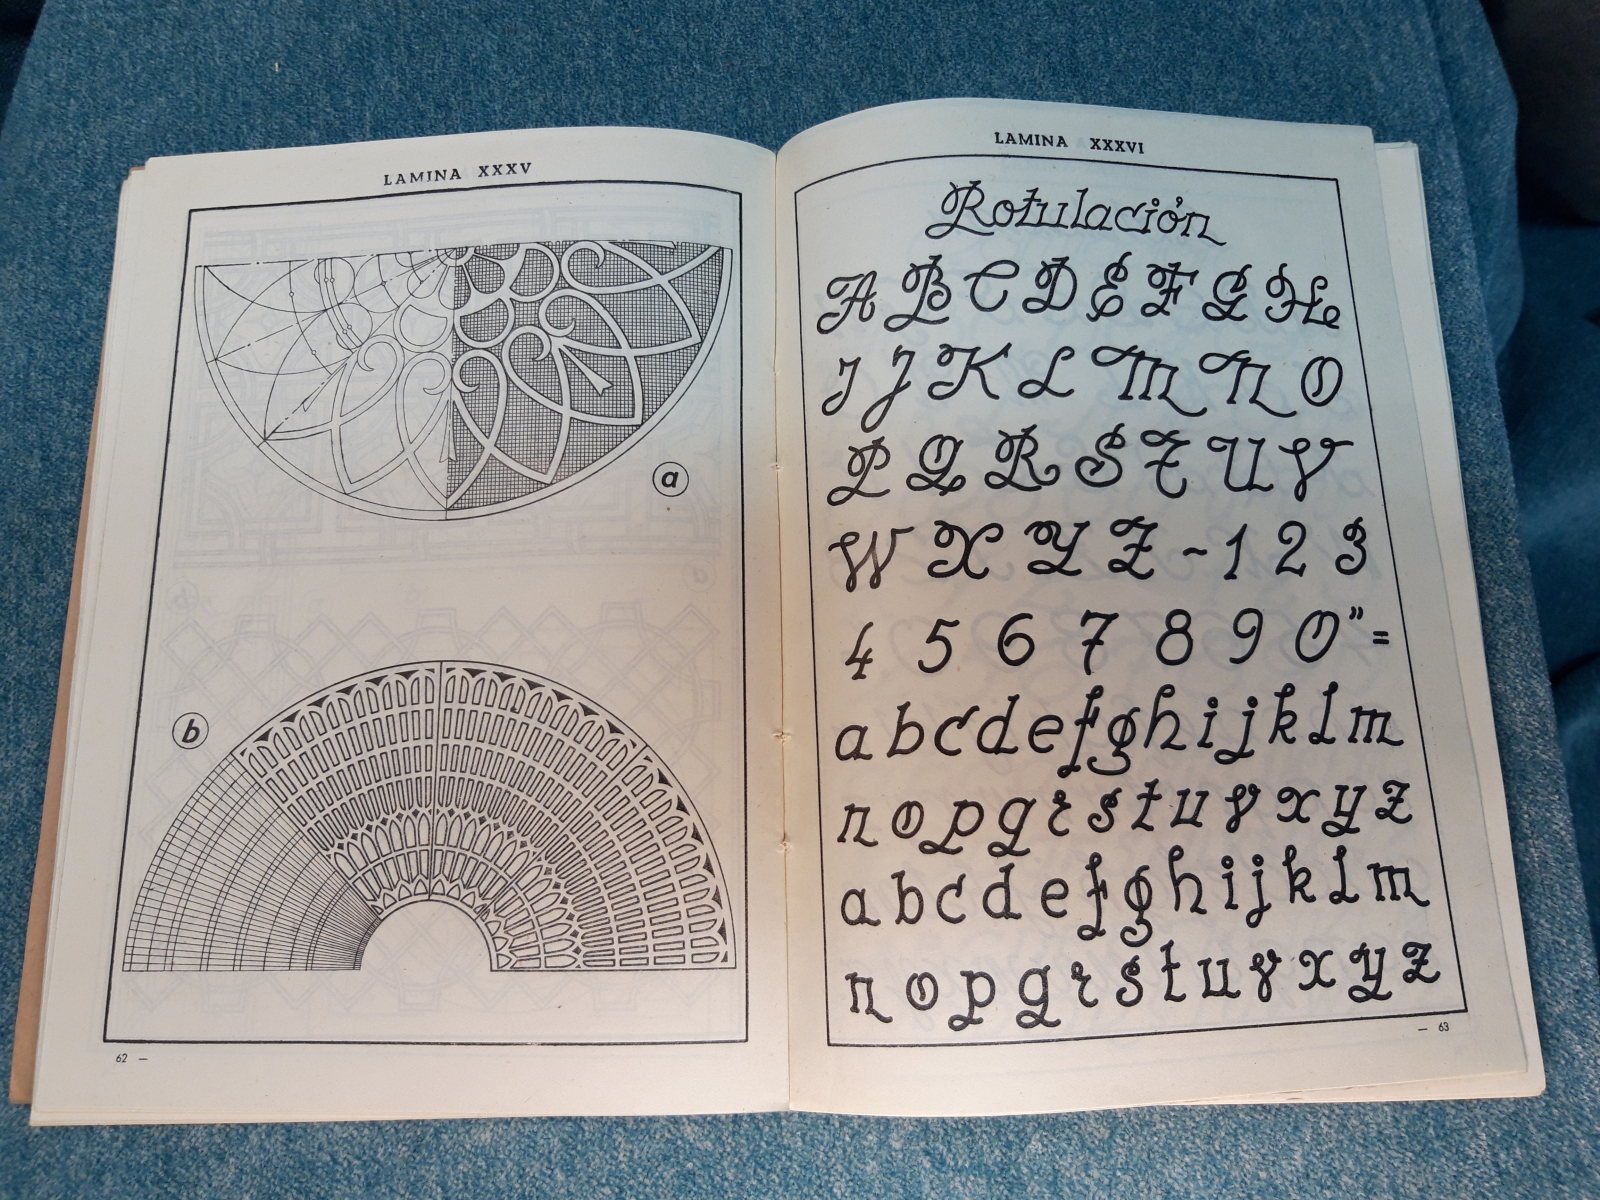 LAMINA XXXV
a
b
62 —
LAMINA XXXVI
Rotulación
A B C D E F G H
I J K L M N O
P Q R S T U V
W X Y Z ~ 1 2 3
4 5 6 7 8 9 0 " =
a b c d e f g h i j k l m
n o p q r s t u v x y z
a b c d e f g h i j k l m
n o p q r s t u v x y z
— 63